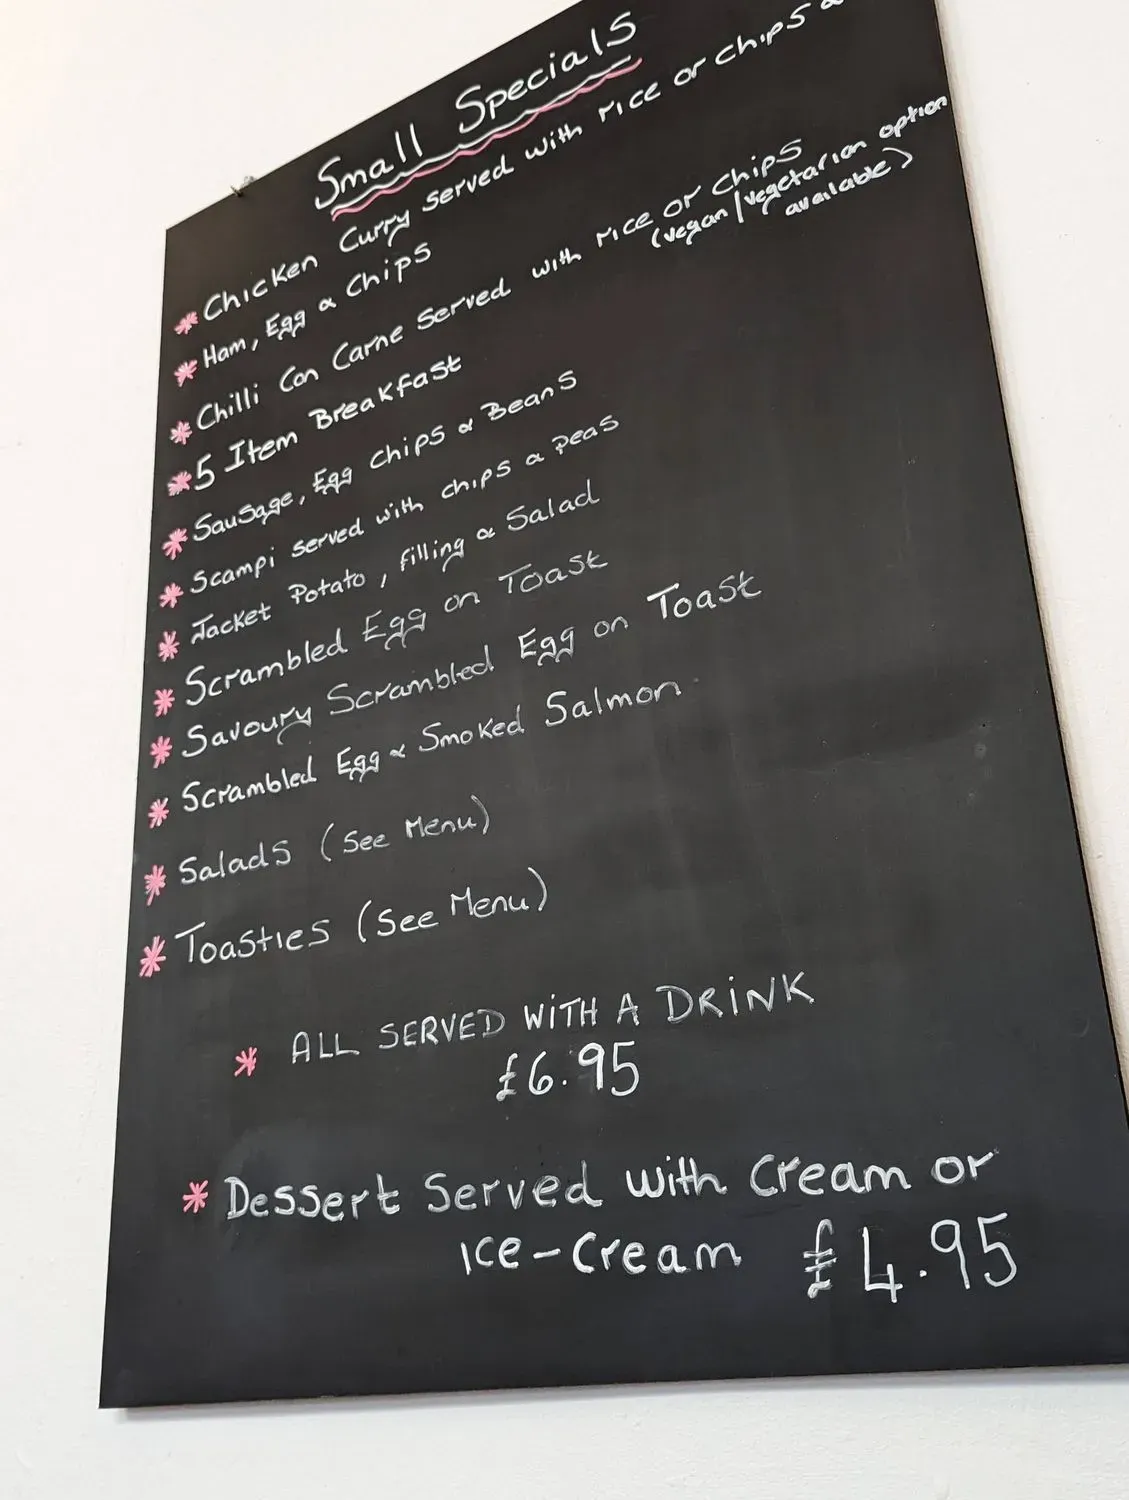 Small Specials
* Chicken Curry served with rice or chips &
* Ham, Egg & Chips
* Chilli Con Carne Served with rice or chips
(vegan/vegetarian option
available)
* 5 Item Breakfast
* Sausage, Egg Chips & Beans
* Scampi served with chips & peas
* Jacket Potato, filling & Salad
* Scrambled Egg on Toast
* Savoury Scrambled Egg on Toast
* Scrambled Egg & Smoked Salmon
* Salads (See Menu)
* Toasties (See Menu)
* ALL SERVED WITH A DRINK
£6.95
* Dessert Served with Cream or
ice-Cream £4.95